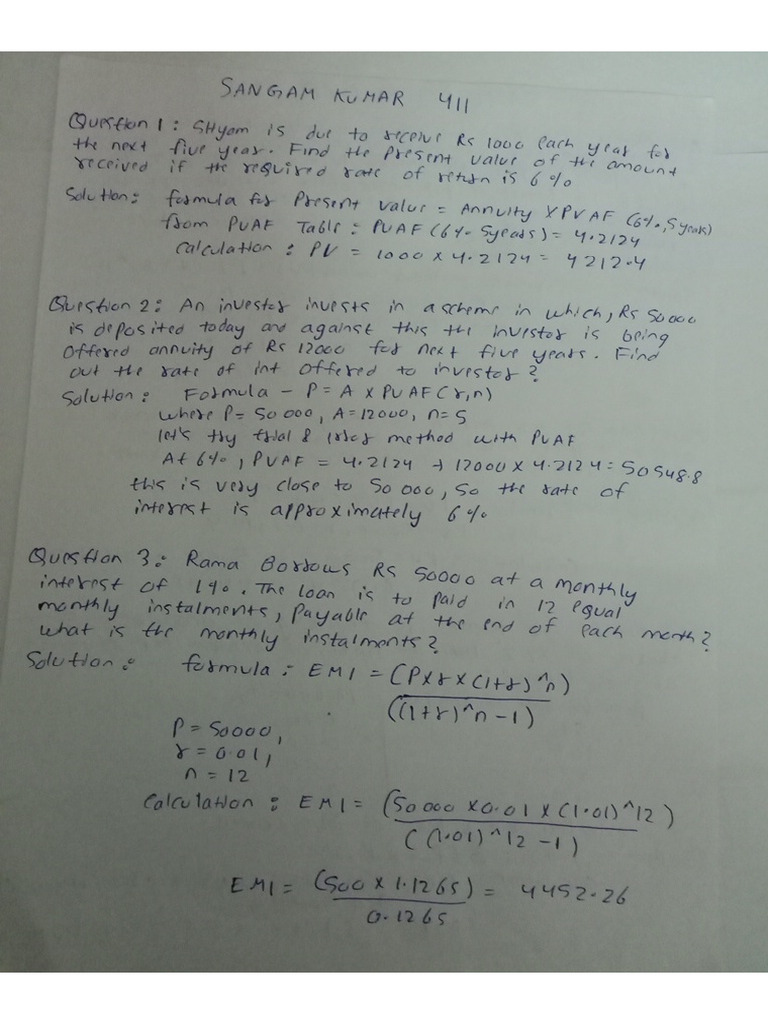 SANGAM KUMAR 411
Question 1: SHyam is due to receive Rs 1000 each year for
the next five year. Find the Present value of the amount
received if the required rate of return is 6%
Solution: formula for Present value = Annuity X PVAF (6%, 5 years)
from PVAF Table: PVAF (6% 5years) = 4.2124
calculation: PV = 1000 x 4.2124 = 4212.4
Question 2: An investor invests in a scheme in which, Rs 50000
is deposited today and against this the investor is being
Offered annuity of Rs 12000 for next five years. Find
out the rate of int offered to investor?
Solution: Formula - P = A x PVAF (r,n)
where P= 50 000, A=12000, n=5
let's try trial & error method with PVAF
At 6%, PVAF = 4.2124 → 12000 x 4.2124 = 50548.8
this is very close to 50 000, so the rate of
interest is approximately 6%
Question 3: Rama Borrows RS 50000 at a monthly
interest of 1%. The loan is to paid in 12 equal
monthly instalments, payable at the end of each month?
what is the monthly instalments?
Solution: formula: EMI = (P x r x (1+r)^n)
((1+r)^n - 1)
P = 50000,
r = 0.01,
n = 12
calculation: EMI = (50000 x 0.01 x (1.01)^12)
((1.01)^12 - 1)
EMI = (500 x 1.1265) = 4452.26
0.1265